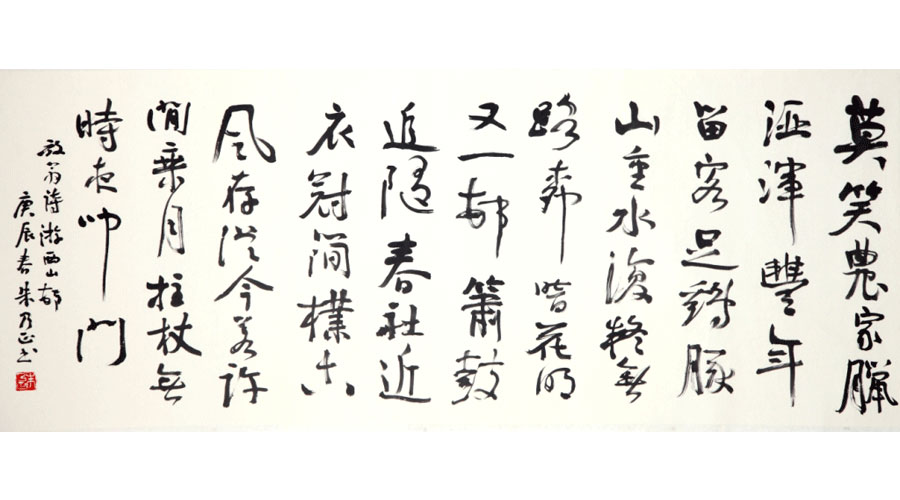 莫笑農家臘
酒渾豐年
留客足鷄豚
山重水復疑無
路柳暗花明
又一邨簫鼓
追隨春社近
衣冠簡樸古
風存從今若許
閒乘月拄杖无
時夜叩門
放翁詩游西山邨
庚辰春朱乃正书